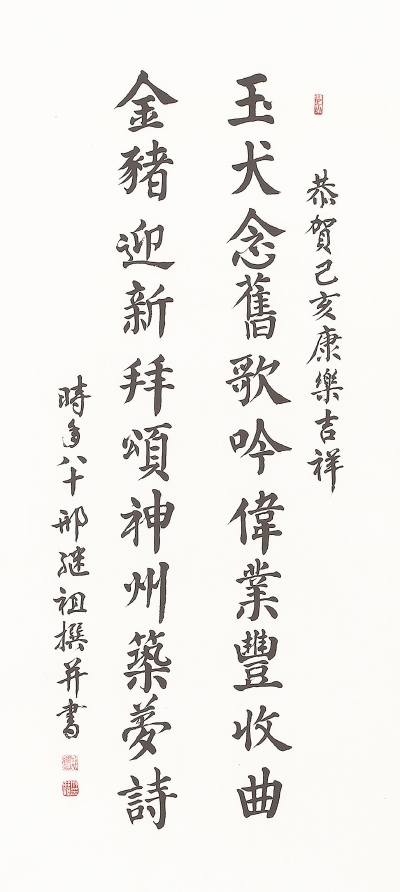 恭賀己亥康樂吉祥
玉犬念舊歌吟偉業豐收曲
金豬迎新拜頌神州築夢詩
時年八十邢继祖撰并書